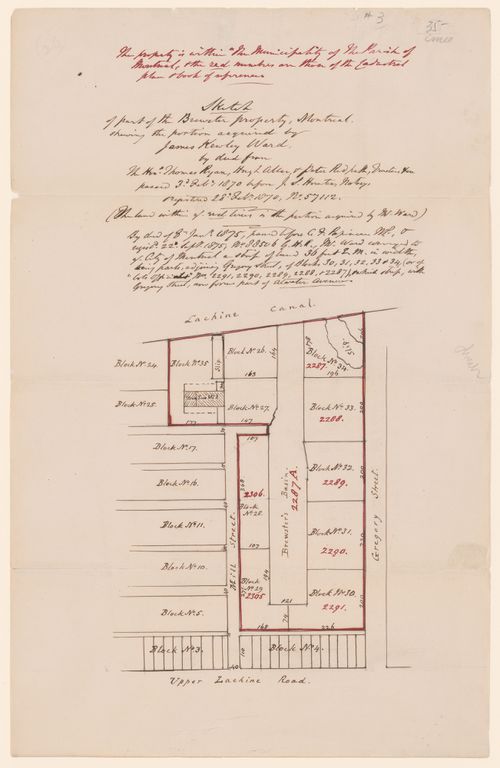 # 3
35-
The property is within "The Municipality of The Parish of
Montreal, & the red numbers are those of the Cadastral
plan & book of reference
Sketch
of part of the Brewster property, Montreal.
shewing the portion acquired by
James Kewley Ward.
by deed from
The Hon. Thomas Ryan, Hugh Allan, & Peter Redpath, Trustees
passed 3d. Feby. 1870 before J. S. Hunter, Notary,
registered 28th Feby. 1870, No. 57112.
(The land within red lines is the portion acquired by Mr Ward)
By deed of 8th Jany. 1875, passed before C. F. Papineau NP., &
regist. 22d. Sept. 1875, No. 88506 Mr. Ward conveyed to
ye City of Montreal a strip of land 36 feet E.M. in width,
being parts, adjoining Gregory street, of Blocks 30, 31, 32, 33 & 34, (or of
lots Off. Nos. 2291, 2290, 2289, 2288, & 2287), which strip, with
Gregory street, now forms part of Atwater Avenue
Lachine Canal.
Block No. 24.
Block No. 35
Slip
Block No. 26.
164
163
178
Block No. 34.
2287.
196
Block No. 25.
Block No. 27.
Block No. 33.
2288.
200
177
107
107
Block No. 17.
Block No. 16.
Block No. 11.
Block No. 10.
Block No. 5.
Mill Street.
2306.
Block
No. 28.
107
Block
No. 29
2305
Brewster's Basin.
2287 A.
194
121
74
168
226
Block No. 32.
2289.
200
Block No. 31.
2290.
220
Block No. 30.
2291.
200
Gregory Street.
Block No. 3.
110
Block No. 4.
40
Upper Lachine Road.